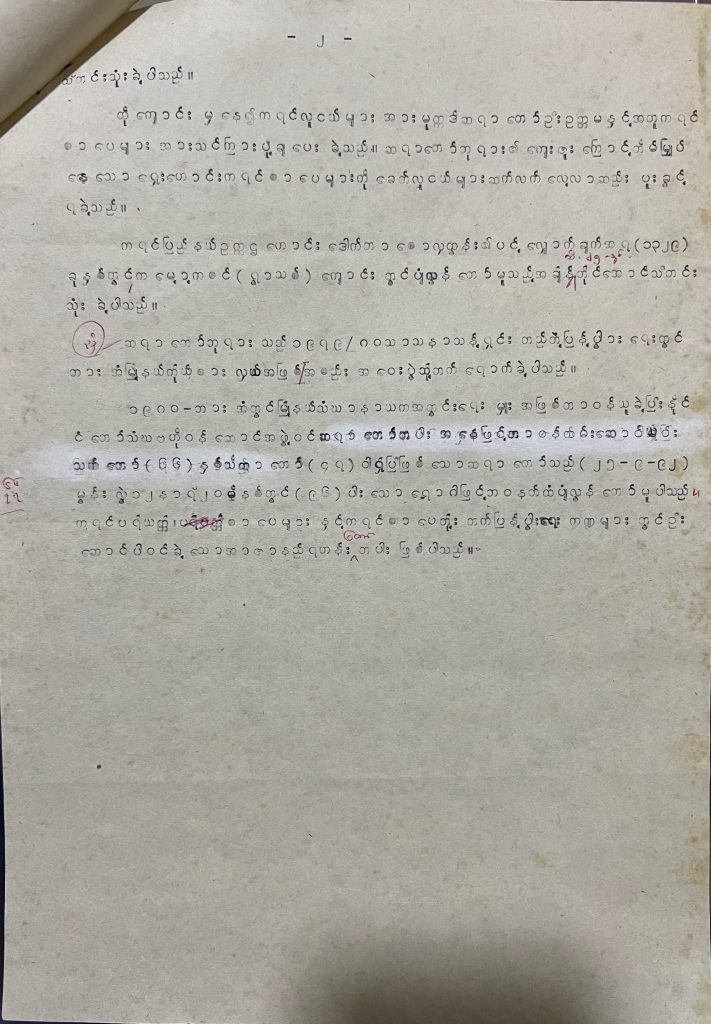 - ၂ -
သီတင်းသုံးခဲ့ပါသည်။
ထိုကျောင်းမှနေ၍ကရင်လူငယ်များအားမူဣဒိဆရာတော်ဦးဥတ္တမနှင့်အတူကရင်
စာပေများအားသင်ကြားပို့ချပေးခဲ့သည်။ ဆရာတော်ဘုရား၏ကျေးဇူးကြောင့်တိမ်မြှုပ်
နေသောရှေးဟောင်းကရင်စာပေများကိုခေတ်လူငယ်များဆက်လက်လေ့လာဆည်းပူးခွင့်
ရခဲ့သည်။
ကရင်ပြည်နယ်ဥက္ကဋ္ဌဟောင်းဒေါက်တာစောလှထွန်း၏ပင့်လျှောက်ချက်အရ(၁၃၂၉)
ခုနှစ်တွင်ကမေ့ာ့ကစင်(ရွာသစ်)ကျောင်းတွင်ပျံလွန်တော်မူသည့်အချိန်ထိုင်အောင်သီတင်း
သုံးခဲ့ပါသည်။
ဆရာတော်ဘုရားသည်၁၉၇၉/၈၀သာသနာသန့်ရှင်းတည်တံ့ပြန့်ပွားရေးတွင်
ဘားအံမြို့နယ်ကိုယ်စားလှယ်အဖြစ်အစည်းအဝေးပွဲသို့တက်ရောက်ခဲ့ပါသည်။
၁၉၈၀-ဘားအံတွင်မြို့နယ်သံဃာနာယကအတွင်းရေးမှူးအဖြစ်တာဝန်ယူခဲ့ပြီးနိုင်
ငံတော်သံဃဗဟိုဝန်ဆောင်အဖွဲ့ဝင်ဆရာတော်တပါးအနေဖြင့်တာဝန်ထမ်းဆောင်ခဲ့ပြီး
သက်တော်(၆၆)နှစ်သိက္ခာတော်(၄၇)ဝါရှိပြီဖြစ်သောဆရာတော်သည်(၂၅-၉-၉၂)
မွန်းလွဲ၁၂နာရီ၂၀မိနစ်တွင်(၉၆)ပါးသောရောဂါဖြင့်ဘဝနတ်ထံပျံလွန်တော်မူပါသည်။
ကရင်ပရိယတ္တိစာပေများနှင့်ကရင်စာပေတိုးတက်ပြန့်ပွားရေးကဏ္ဍများတွင်ဦး
ဆောင်ပါဝင်ခဲ့သောအာဇာနည်ရဟန်းတော်တပါးဖြစ်ပါသည်။